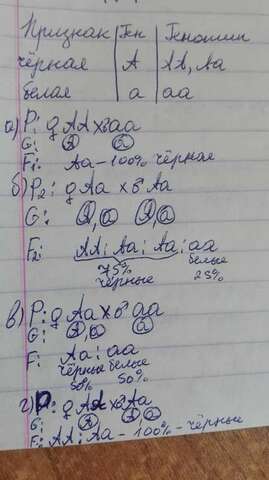 Признак Ген Генотип
чёрная А АА, Аа
белая а аа
а) Р: ♀ АА х ♂ аа
G: А а
F₁: Аа - 100% чёрная
б) Р₂: ♀ Аа х ♂ Аа
G: А, а А, а
F₂: АА; Аа; Аа; аа
75% белые
чёрные 25%
в) Р: ♀ Аа х ♂ аа
G: А, а а
F: Аа : аа
чёрные белые
50% 50%
г) Р: ♀ АА х ♂ Аа
G: А А, а
F: АА : Аа - 100% - чёрные